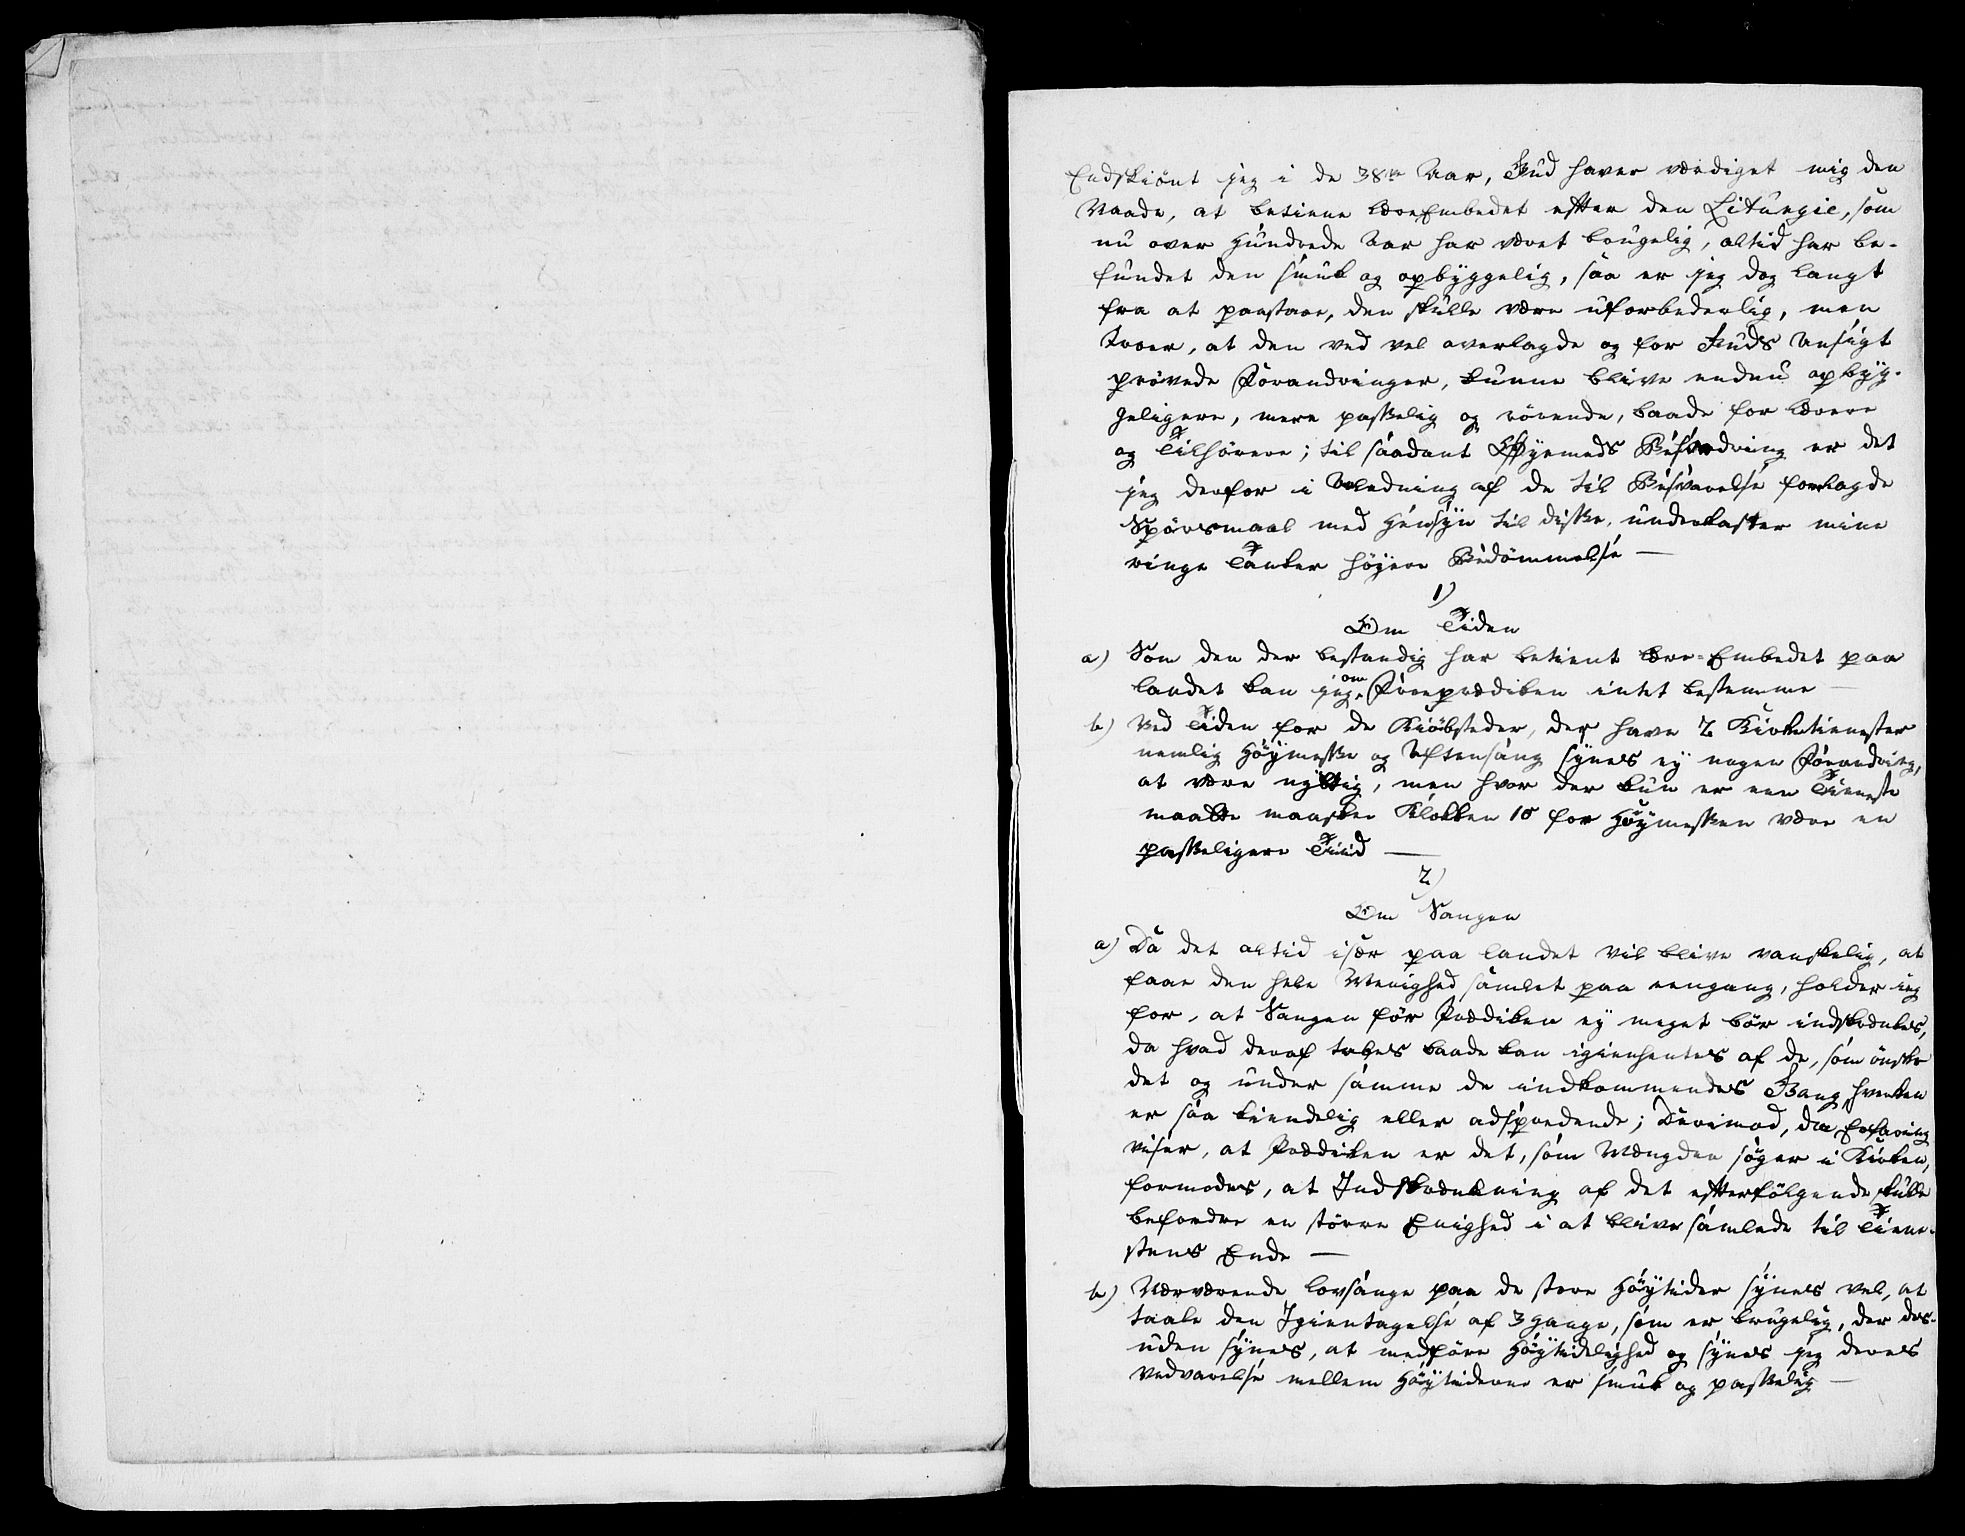 Endskiönt jeg i de 38te Aar, Gud haver værdiget mig den
Naade, at betiene læreEmbedet efter den Liturgie, som
nu over Hundrede Aar har været brugelig, altid har be-
fundet den smuk og opbyggelig, saa er jeg dog langt
fra at paastaae, den skulle være uforbederlig, men
troer, at den ved vel overlagde og for Guds Ansigt
prövede Forandringer, kunne blive endnu opbyg-
geligere, mere passelig og rörende, baade for lærere
og Tilhörere; til saadant Öyemeds Befordring er det
jeg derfor i Anledning af de til Besvarelse forelagde
Spörsmaal med Hensyn til disse, underkaster mine
ringe Tanker höyere Bedömmelse —
1)
Om Tiden
a) Som den der bestandig har betient lære-Embedet paa
landet kan jeg om Froeprædiken intet bestemme —
b) Ved Tiden for de Kiöbsteder, der have 2 Kirketienester
nemlig Höymesse og Aftensang synes ey nogen Forandring,
at være nyttig, men hvor der kun er een Tieneste
maatte maaskee Klokken 10 for Höymessen være en
passeligere Tiid —
2)
Om Sangen
a) Da det altid især paa landet vil blive vanskelig, at
faae den hele Menighed samlet paa eengang, holder jeg
for, at Sangen för Prædiken ey meget bör indskrænkes,
da hvad deraf tabes baade kan igienhentes af de, som önske
det og under samme de indkommendes Gang hverken
er saa kiendelig eller adspredende; Derimod, da Erfaring
viser, at Prædiken er det, som Mængden söger i Kirken,
formodes, at Indskrænkning af det efterfölgende skulle
befordre en större Enighed i at blive samlede til Tiene-
stens Ende —
b) Nærværende lovsange paa de store Höytider synes vel, at
taale den Igientagelse af 3 gange, som er brugelig, der des-
uden synes, at medföre Höytidelighed og synes jeg deres
Vedvarelse mellem Höytiderne er smuk og passelig —